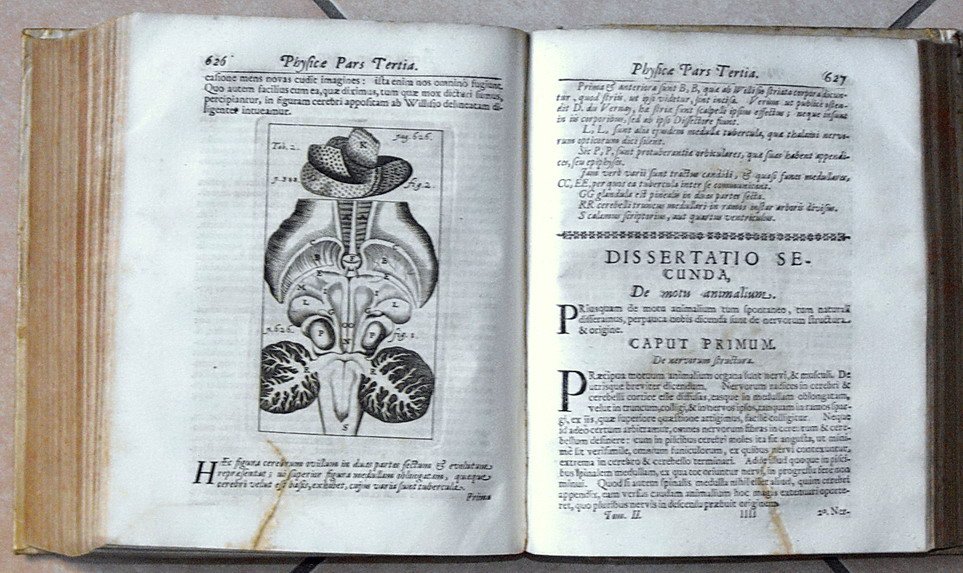 626 Physicæ Pars Tertia.
casione mens novas cudit imagines: ista enim nos omninò fugiunt.
Quo autem facilius cum ea, quæ diximus, tum quæ mox dicturi sumus,
percipiantur, in figuram cerebri appositam ab Willisio delineatam di-
ligenter intueamur.
pag. 626.
Tab. 2.
K
fig. 2.
B B
E E
L L
G
P P
p. 626.
fig. 1.
N
R R
S
HÆc figura cerebrum ovillum in duas partes sectum & evolutum
repræsentat; ut superior figura medullam oblongatam, quæque
cerebri velut est basis, exhibet, cujus varia sunt tubercula.
Prima
Physicæ Pars Tertia. 627
Prima & anteriora sunt B, B, quæ ab Willisio striata corpora dicun-
tur, quod striis, ut ipsi videtur, sint incisa. Verùm ut publicè osten-
dit D. du Verney, hæ striæ sunt scalpelli ipsius effectus; neque insunt
in iis corporibus, sed ab ipso Dissectore fiunt.
L, L, sunt alia ejusdem medullæ tubercula, quæ thalami nervo-
rum opticorum dici solent.
Sic P, P, sunt protuberantiæ orbiculares, quæ suas habent appendi-
ces, seu epiphyses.
Jam verò varii sunt tractus candidi, & quasi funes medullares,
CC, EE, per quos ea tubercula inter se communicant.
GG glandula est pinealis in duas partes secta.
RR cerebelli truncus medullaris in ramos instar arboris divisus.
S calamus scriptorius, aut quartus ventriculus.
DISSERTATIO SE-
CUNDA,
De motu animalium.
PRiusquam de motu animalium tum spontaneo, tum naturali
disseramus, perpauca nobis dicenda sunt de nervorum structura
& origine.
CAPUT PRIMUM.
De nervorum structura.
PRæcipua motuum animalium organa sunt nervi, & musculi. De
utrisque breviter dicendum. Nervorum radices in cerebri &
cerebelli cortice esse diffusas, easque in medullam oblongatam,
velut in truncum, colligi, & in nervos ipsos, tanquam in ramos spar-
gi, ex iis, quæ superiore quæstione attigimus, facilè colligitur. Neque
id adeo certum arbitramur, omnes nervorum fibras in cerebrum & cere-
bellum desinere: cum in piscibus cerebri moles ita sit angusta, ut mini-
mè sit verisimile, omnium funiculorum, ex quibus nervi contexuntur,
extrema in cerebro & cerebello terminari. Adde illud quoque in pisci-
bus spinalem medullam, ex qua tot oriuntur nervi, in progressu ferè non
minui. Quod si autem spinalis medulla nihil esset aliud, quàm cerebri
appendix, eam versus caudam animalium hoc magis extenuari oporte-
ret, quo pluribus nervis in descensu præbuit originem.
Tom. II. IIII 2o. Ner-